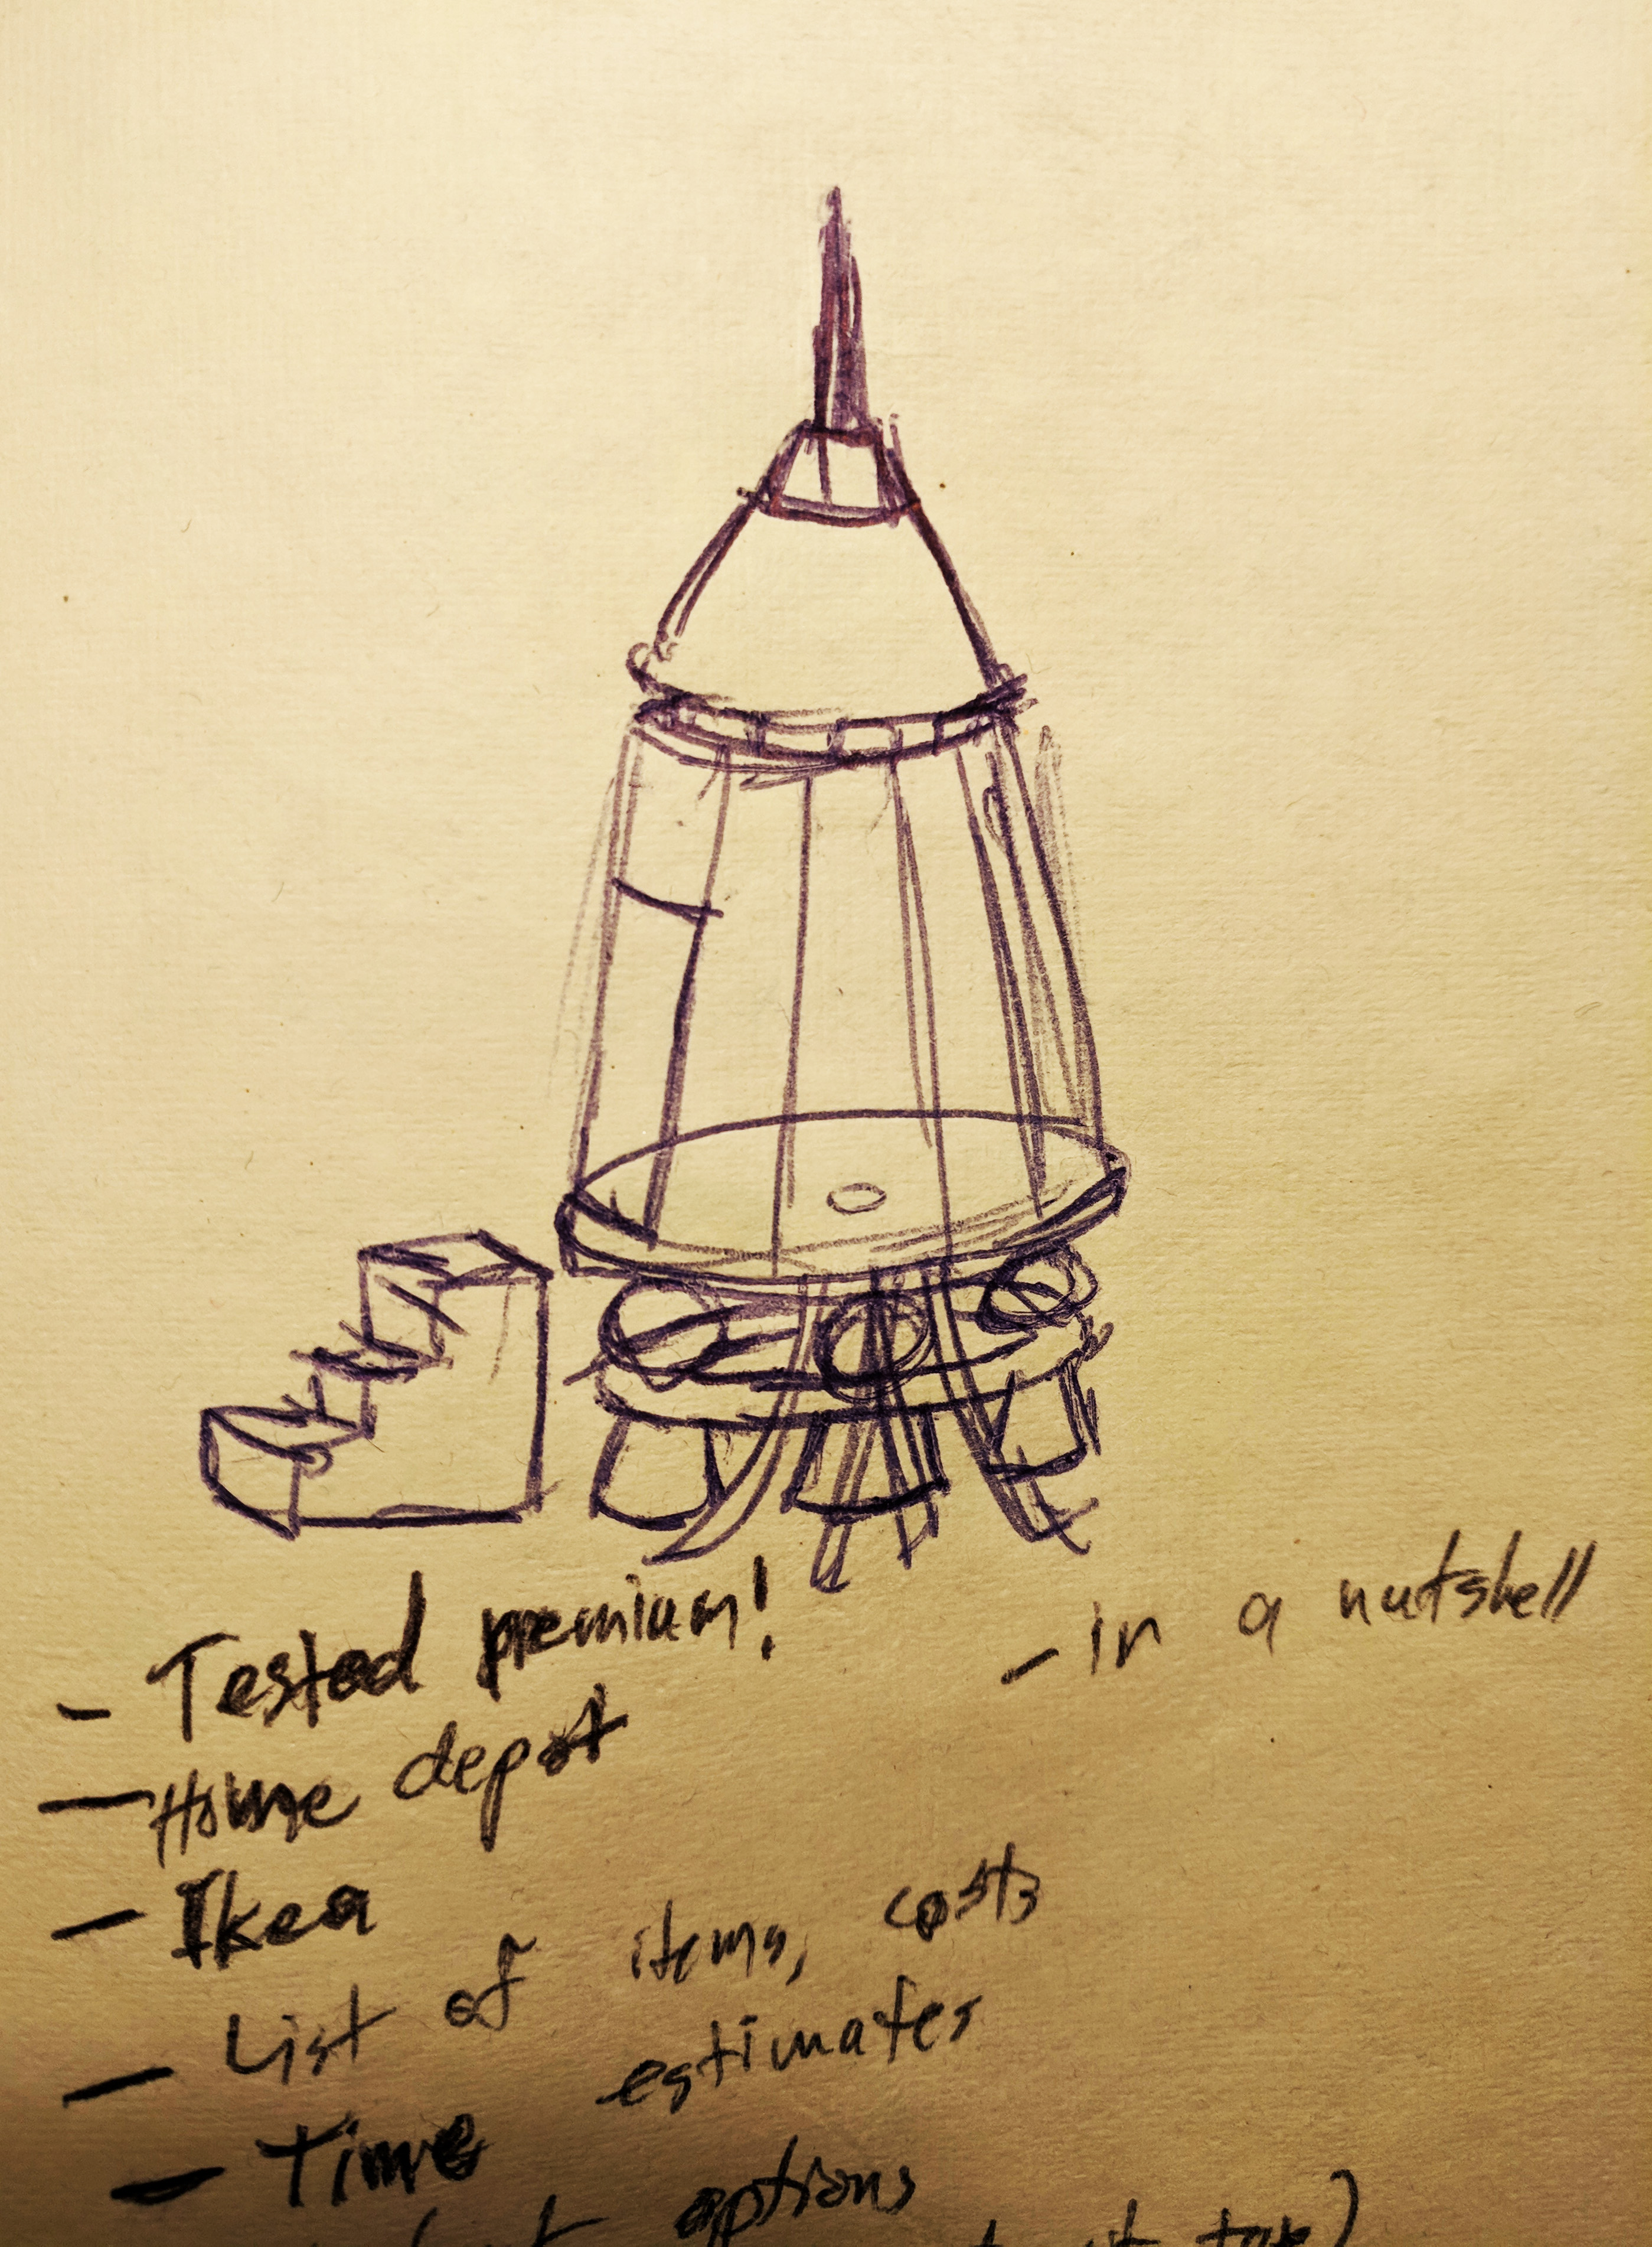 - Tested premium!
- in a nutshell
- Home depot
- Ikea
- List of items, costs
- Time estimates
options